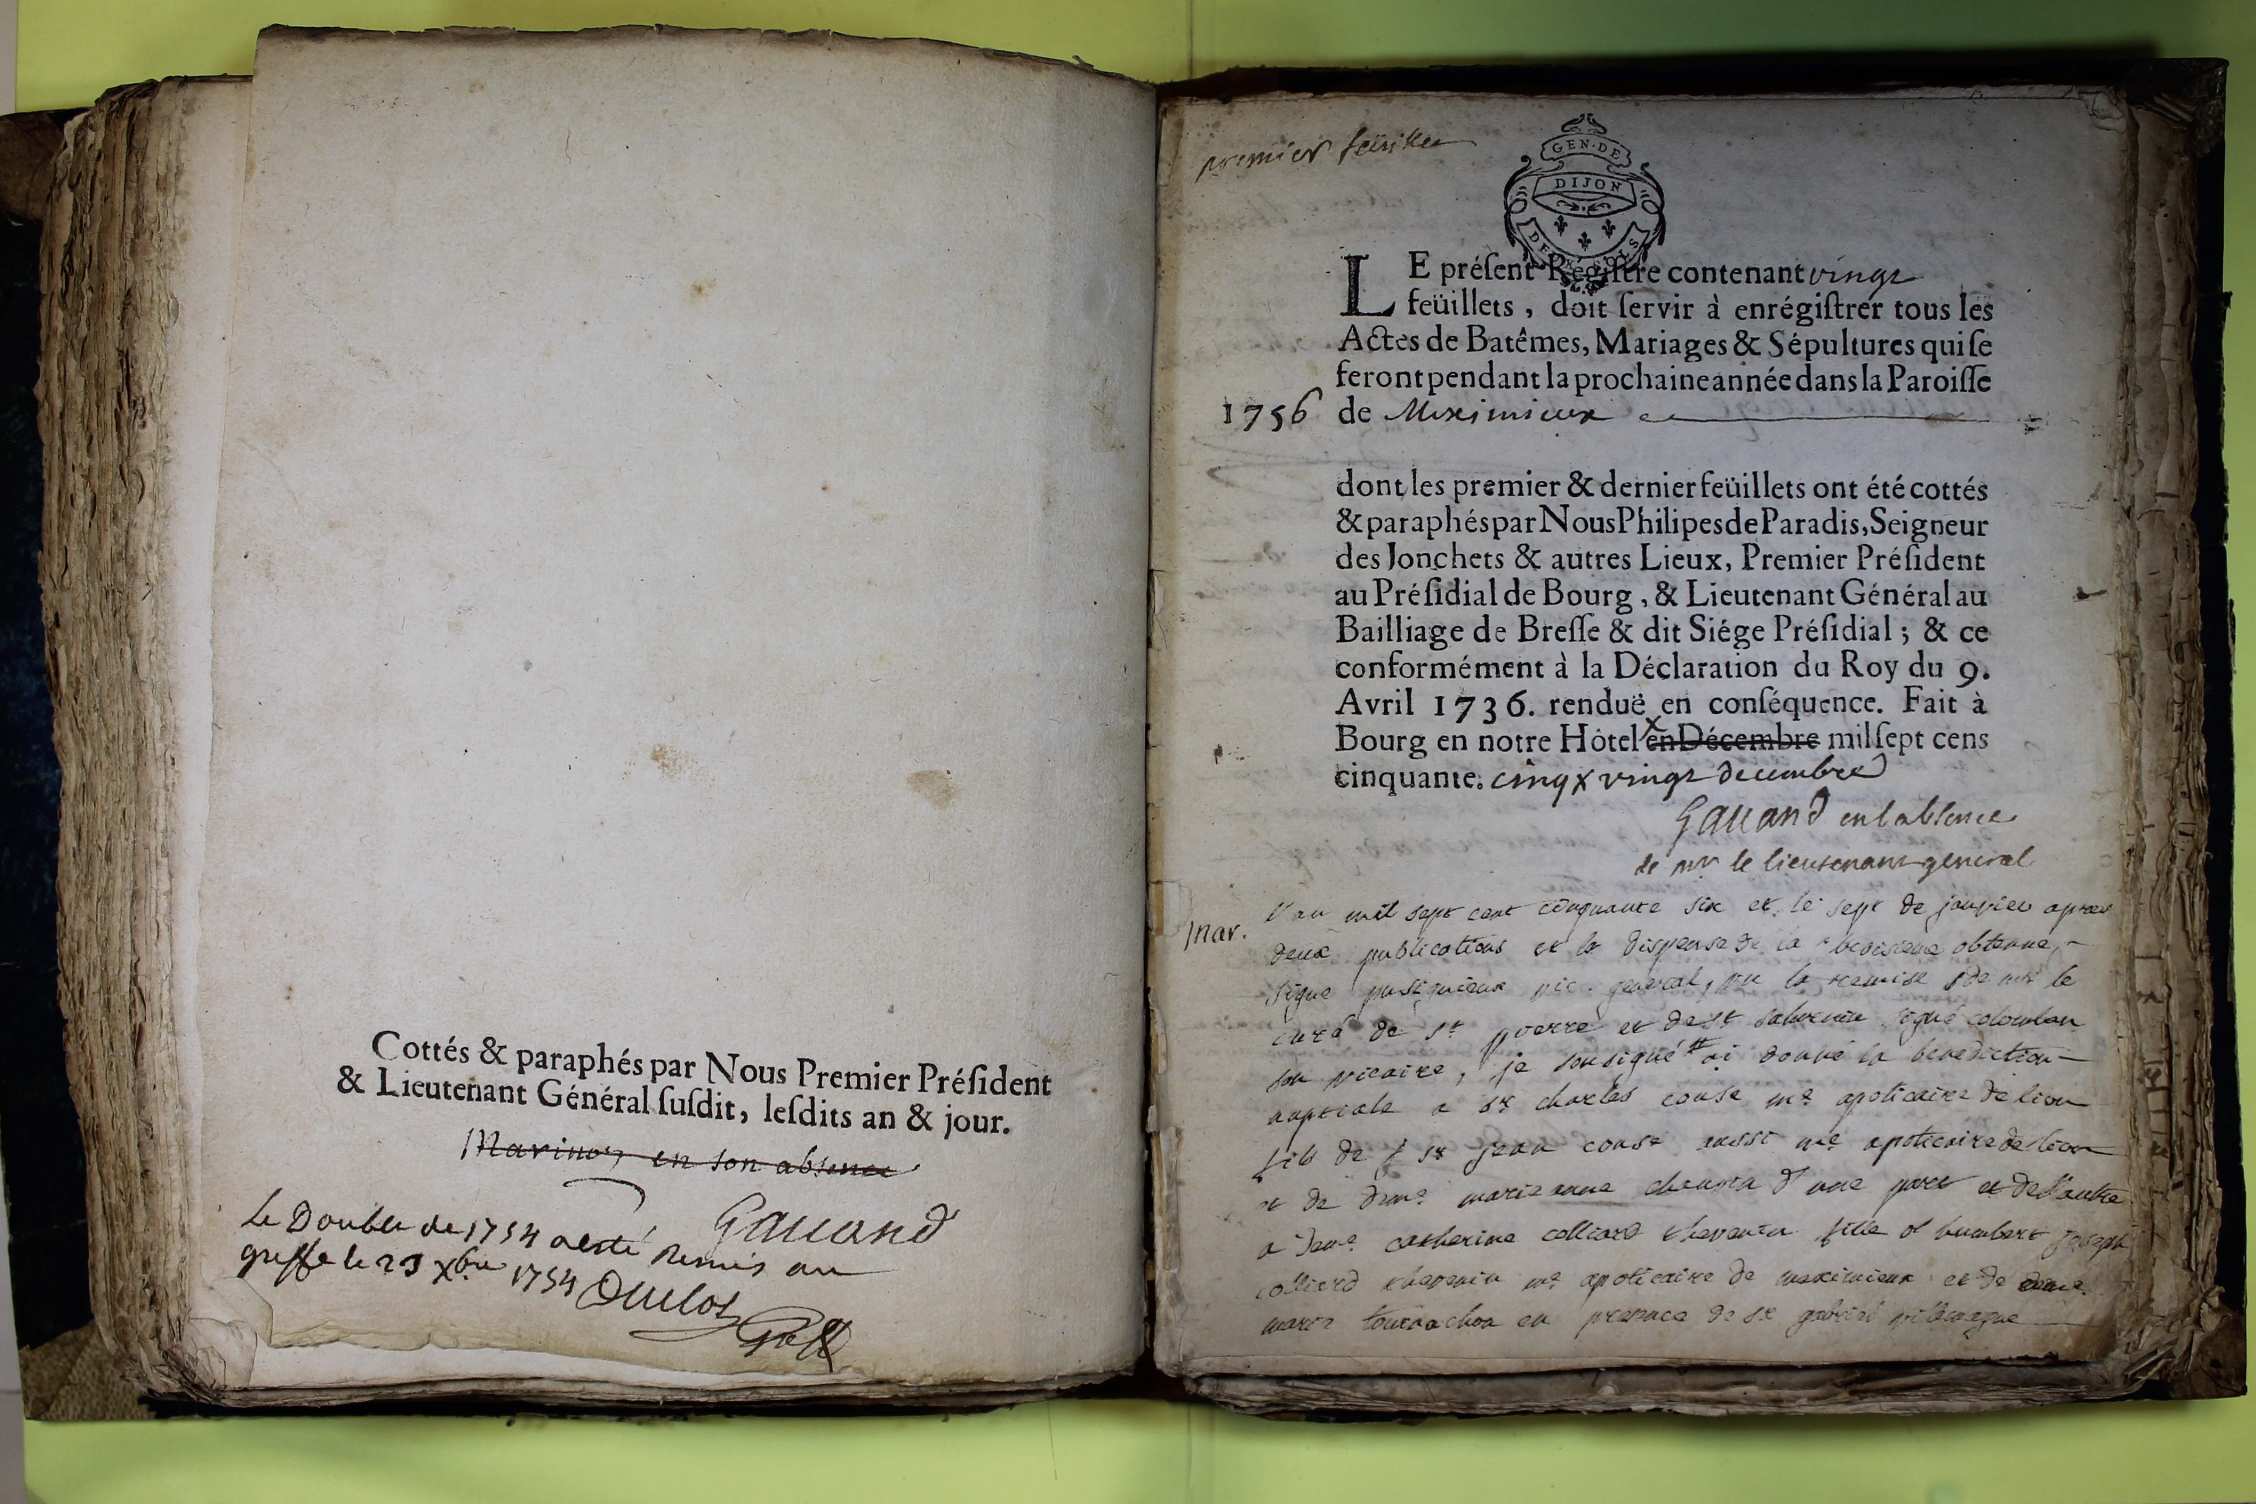 Cottés & paraphés par Nous Premier Préſident
& Lieutenant Général ſuſdit, leſdits an & jour.
en son absence
Gauand
Le Double de 1754 a esté Remis au
greffe le 23 xbre 1754 Duclos
premier feüillet
GEN·DE
DIJON
LE préſent Regiſtre contenant vingt
feüillets, doit ſervir à enrégiſtrer tous les
Actes de Batêmes, Mariages & Sépultures qui ſe
feront pendant la prochaine année dans la Paroiſſe
1756 de Meximieux
dont les premier & dernier feüillets ont été cottés
& paraphés par Nous Philipes de Paradis, Seigneur
des Jonchets & autres Lieux, Premier Préſident
au Préſidial de Bourg, & Lieutenant Général au
Bailliage de Breſſe & dit Siége Préſidial; & ce
conformément à la Déclaration du Roy du 9.
Avril 1736. renduë en conſéquence. Fait à
Bourg en notre Hôtel x en Décembre mil ſept cens
cinquante. cinq x vingt decembre
Gauand en labsence
de mr le lieutenant general
mar.
l'an mil sept cent cinquante six et le sept de janvier apres
deux publications et la dispense de la troisieme obtenue,
signe vic. general, vu la remise de mr le
curé de st pierre et de st saturnin signé colomban
son vicaire, je soussigné # ai donné la benediction
nuptiale a sr charles couse me apoticaire de lion
fils de f sr jean couse aussi me apoticaire de lion
et de dme marie anne d'une part et de l'autre
a deme catherine colliard thevenin fille d humbert joseph
colliard thevenin me apoticaire de meximieux et de deme
marie tournachon en presence de sr gabriel